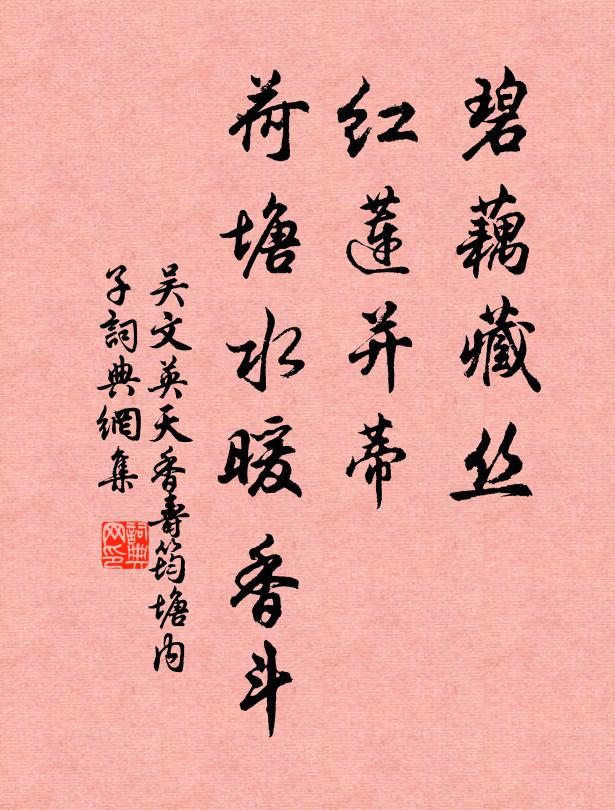 碧藕藏丝
红莲并蒂
荷塘水暖香斗
吴文英天香寿筠塘内
子词典網集
词典网印